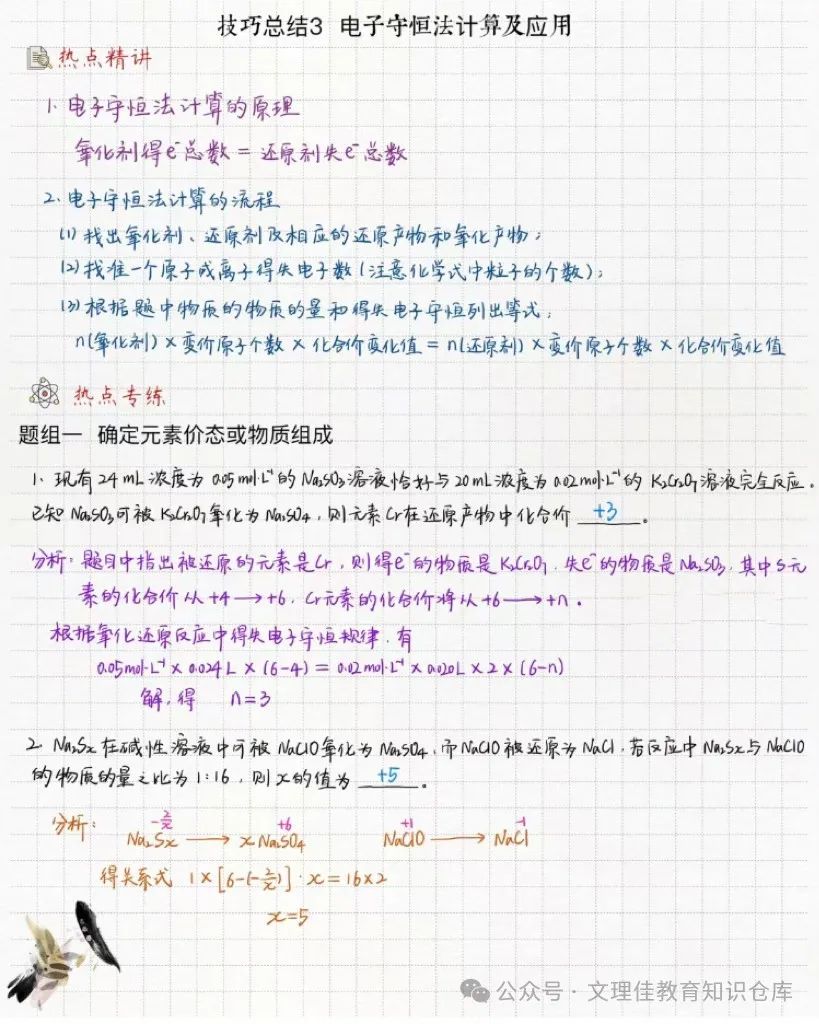 技巧总结3 电子守恒法计算及应用
热点精讲
1. 电子守恒法计算的原理
氧化剂得e⁻总数 = 还原剂失e⁻总数
2. 电子守恒法计算的流程
(1) 找出氧化剂、还原剂及相应的还原产物和氧化产物；
(2) 找准一个原子或离子得失电子数（注意化学式中粒子的个数）；
(3) 根据题中物质的物质的量和得失电子守恒列出等式；
n(氧化剂) × 变价原子个数 × 化合价变化值 = n(还原剂) × 变价原子个数 × 化合价变化值
热点专练
题组一 确定元素价态或物质组成
1. 现有24 mL 浓度为 0.05 mol·L⁻¹的 Na₂SO₃溶液恰好与20 mL浓度为0.02 mol·L⁻¹的 K₂Cr₂O₇溶液完全反应。
已知 Na₂SO₃可被 K₂Cr₂O₇氧化为 Na₂SO₄，则元素Cr在还原产物中化合价 +3 。
分析：题目中指出被还原的元素是Cr，则得e⁻的物质是K₂Cr₂O₇，失e⁻的物质是Na₂SO₃，其中S元
素的化合价从+4⟶+6，Cr元素的化合价将从+6⟶+n。
根据氧化还原反应中得失电子守恒规律，有
0.05mol·L⁻¹ × 0.024L × (6-4) = 0.02mol·L⁻¹ × 0.020L × 2 × (6-n)
解，得 n=3
2. Na₂Sx在碱性溶液中可被 NaClO氧化为 Na₂SO₄，而NaClO被还原为NaCl，若反应中Na₂Sx与NaClO
的物质的量之比为1:16，则x的值为 +5 。
-2/x +6 +1 -1
分析： Na₂Sx ⟶ xNa₂SO₄ NaClO ⟶ NaCl
得关系式 1×[6-(-2/x)]·x=16×2
x=5
公众号·文理佳教育知识仓库